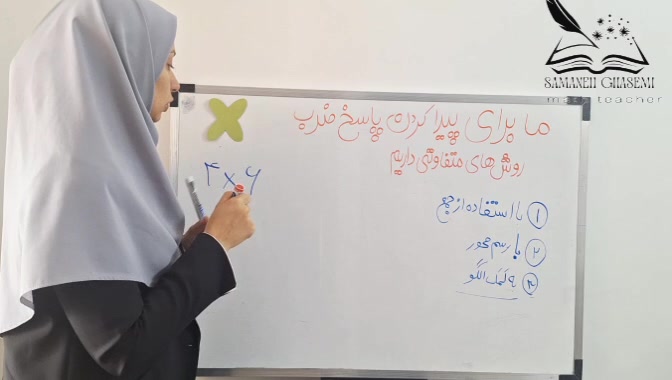 SAMANEH GHASEMI
math teacher
ما برای پیدا کردن پاسخ ضرب
روش های متفاوتی داریم
۱ با استفاده از جمع
۲ با رسم محور
۳ به کمک الگو
۴×۶